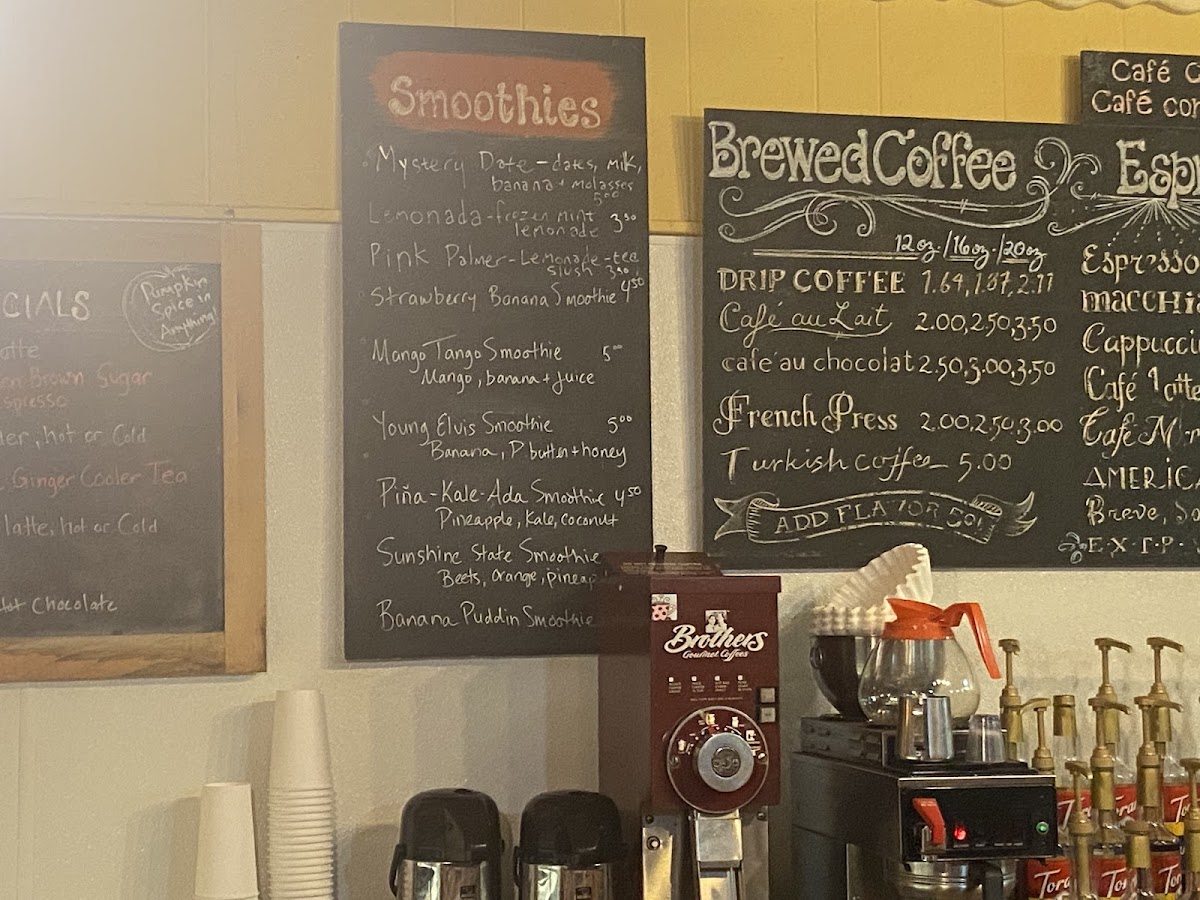 CIALS
Pumpkin
Spice in
Anything!
atte
Brown Sugar
spresso
der, hot or Cold
Ginger Cooler Tea
latte, hot or Cold
Hot Chocolate
Smoothies
Mystery Date - dates, milk,
banana + molasses
5.00
Lemonada - frozen mint 3.50
lemonade
Pink Palmer - Lemonade - tea
slush 3.50
Strawberry Banana Smoothie 4.50
Mango Tango Smoothie 5.00
Mango, banana + juice
Young Elvis Smoothie 5.00
Banana, P butter + honey
Piña-Kale-Ada Smoothie 4.50
Pineapple, Kale, coconut
Sunshine State Smoothie
Beets, orange, pineap
Banana Puddin Smoothie
Café C
Café cor
Brewed Coffee
12oz. / 16oz. / 20oz
DRIP COFFEE 1.64, 1.87, 2.11
Café au Lait 2.00, 2.50, 3.50
café au chocolat 2.50, 3.00, 3.50
French Press 2.00, 2.50, 3.00
Turkish coffee 5.00
ADD FLAVOR 50¢
Esp
Espresso
macchia
Cappucci
Café Latte
Café M
AMERICA
Breve, So
E·X·T·P
Brothers
Gourmet Coffees
Tora
Tor
Tor